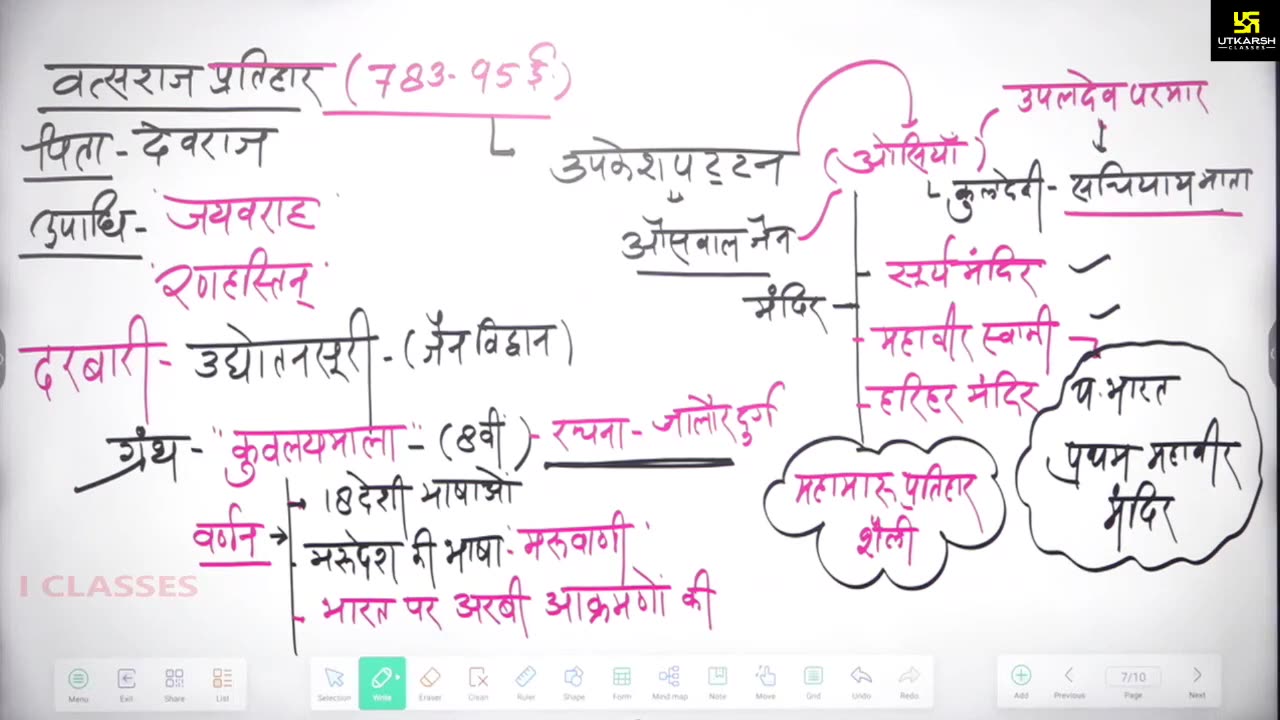 वत्सराज प्रतिहार (783-95ई.)
पिता - देवराज
उपाधि - जयवराह
रणहस्तिन्
दरबारी - उद्योतनसूरी - (जैन विद्वान)
ग्रंथ - "कुवलयमाला" - (8वीं) - रचना - जालौर दुर्ग
वर्णन → 18 देशी भाषाओं
मरुदेश की भाषा - मरुवाणी
भारत पर अरबी आक्रमणों की
उपकेश पट्टन (ओसियाँ)
ओसवाल जैन
उपलदेव परमार
कुलदेवी - सचियाय माता
मंदिर
सूर्य मंदिर ✓
महावीर स्वामी ✓
हरिहर मंदिर
प. भारत
प्रथम महावीर
मंदिर
महामारू प्रतिहार
शैली
UTKARSH
CLASSES
I CLASSES
Menu Exit Share List Selection Write Eraser Clean Ruler Shape Form Mind map Note Move Grid Undo Redo Add Previous 7/10 Page Next